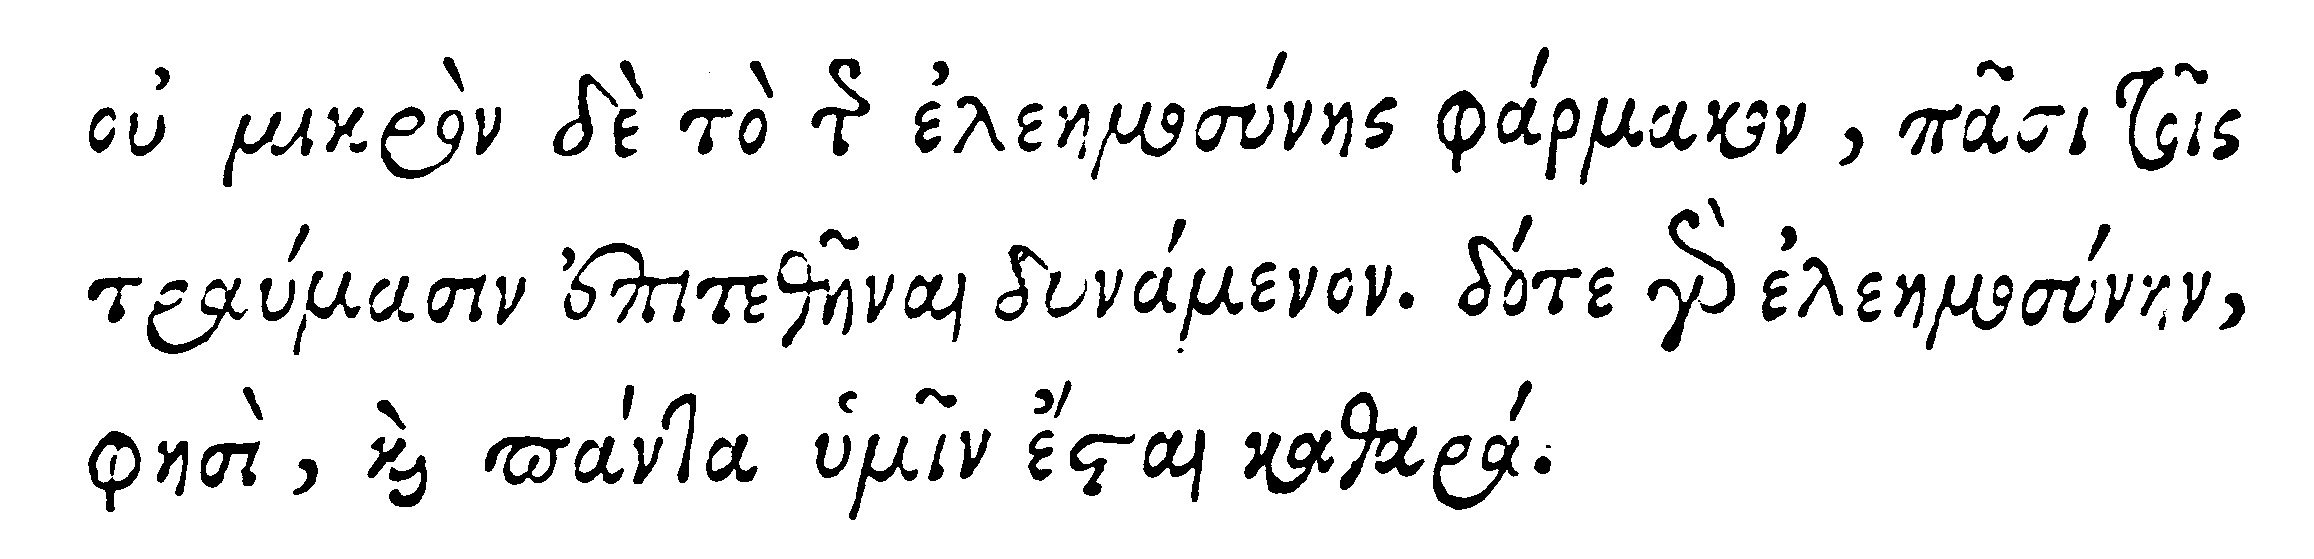 οὐ μικρὸν δὲ τὸ τῆς ἐλεημοσύνης φάρμακον, πᾶσι τοῖς
τραύμασιν ἐπιτεθῆναι δυνάμενον. δότε γὰρ ἐλεημοσύνην,
φησὶ, καὶ πάντα ὑμῖν ἔσται καθαρά.